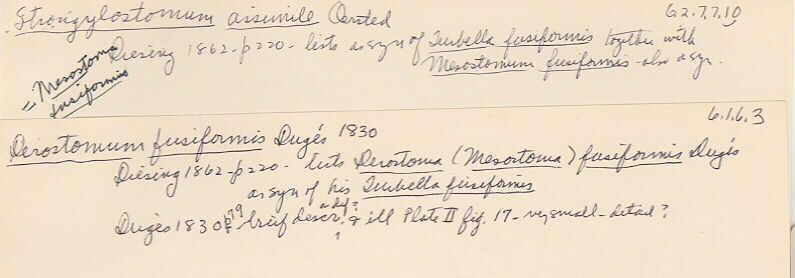 Strongylostomum assimile Oersted 62.7.7.10
Diesing 1862 - p220 - lists as syn of Turbella fusiformis together with
Mesostomum fusiformis - also a syn.
= Mesostoma
fusiformis
Derostomum fusiformis Dugés 1830 6.1.6.3
Diesing 1862 - p220 - lists Derostoma (Mesostoma) fusiformis Dugés
as syn of his Turbella fusiformis
Dugés 1830 p79 brief descr. & ill Plate II fig. 17 - very small - detail?